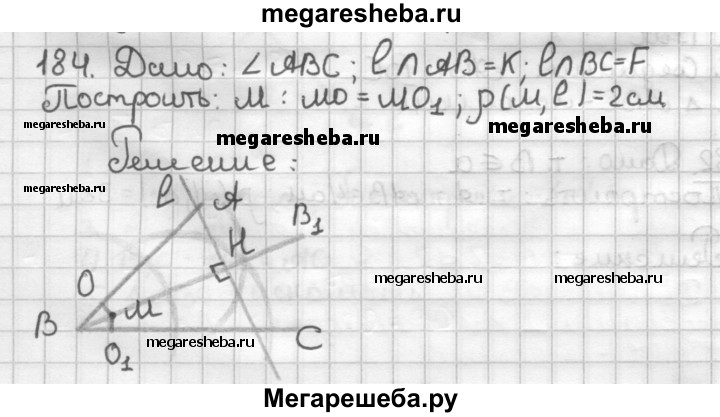 megaresheba.ru
184. Дано: ∠ABC; ℓ∩AB=K; ℓ∩BC=F
Построить: M: MO=MO₁; ρ(M,ℓ)=2см
megaresheba.ru
megaresheba.ru
megaresheba.ru
Решение:
megaresheba.ru
ℓ
A
B₁
H
O
M
B
O₁
C
megaresheba.ru
megaresheba.ru
megaresheba.ru
Мегарешеба.ру